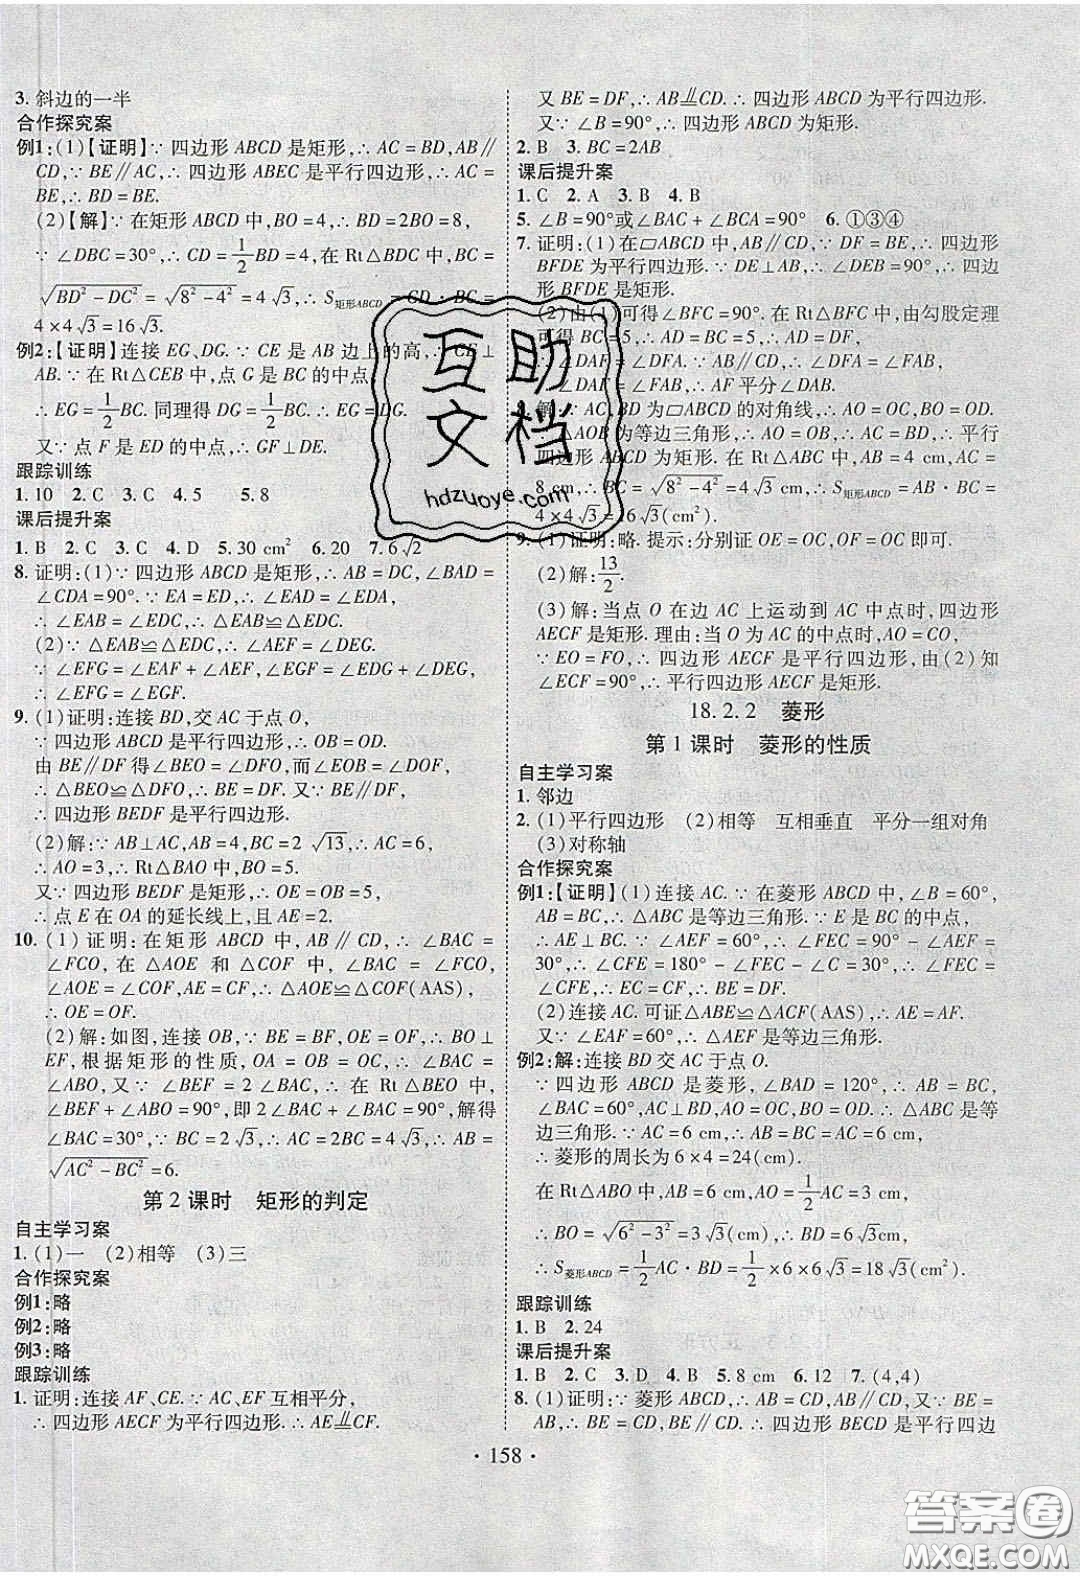 3. 斜边的一半
合作探究案
例1:(1)【证明】∵ 四边形 ABCD 是矩形,∴ AC = BD,AB∥
CD,∵ BE∥AC,∴ 四边形 ABEC 是平行四边形,∴ AC =
BE,∴ BD = BE.
(2)【解】∵ 在矩形 ABCD 中,BO = 4,∴ BD = 2BO = 8,
∵ ∠DBC = 30°,∴ CD = 1/2 BD = 4,在 Rt△BDC 中,BC =
√(BD² − DC²) = √(8² − 4²) = 4√3,∴ S矩形ABCD = CD · BC =
4 × 4√3 = 16√3.
例2:【证明】连接 EG、DG. ∵ CE 是 AB 边上的高,∴ CE⊥
AB. ∵ 在 Rt△CEB 中,点 G 是 BC 的中点,
∴ EG = 1/2 BC. 同理得 DG = 1/2 BC. ∴ EG = DG.
又∵ 点 F 是 ED 的中点,∴ GF⊥DE.
跟踪训练
1. 10 2. C 3. C 4. 5 5. 8
课后提升案
1. B 2. C 3. C 4. D 5. 30 cm² 6. 20 7. 6√2
8. 证明:(1)∵ 四边形 ABCD 是矩形,∴ AB = DC,∠BAD =
∠CDA = 90°. ∵ EA = ED,∴ ∠EAD = ∠EDA,
∴ ∠EAB = ∠EDC,∴ △EAB≌△EDC.
(2)∵ △EAB≌△EDC,∴ ∠AEF = ∠DEG.
∵ ∠EFG = ∠EAF + ∠AEF,∠EGF = ∠EDG + ∠DEG,
∴ ∠EFG = ∠EGF.
9. (1)证明:连接 BD,交 AC 于点 O,
∵ 四边形 ABCD 是平行四边形,∴ OB = OD.
由 BE∥DF 得∠BEO = ∠DFO,而∠EOB = ∠DOF,
∴ △BEO≌△DFO,∴ BE = DF. 又 BE∥DF,
∴ 四边形 BEDF 是平行四边形.
(2)解:∵ AB⊥AC,AB = 4,BC = 2√13,∴ AC = 6,
∴ AO = 3,∴ Rt△BAO 中,BO = 5.
又∵ 四边形 BEDF 是矩形,∴ OE = OB = 5,
∴ 点 E 在 OA 的延长线上,且 AE = 2.
10. (1)证明:在矩形 ABCD 中,AB∥CD,∴ ∠BAC =
∠FCO,在 △AOE 和 △COF 中,∠BAC = ∠FCO,
∠AOE = ∠COF,AE = CF,∴ △AOE≌△COF(AAS),
∴ OE = OF.
(2)解:如图,连接 OB,∵ BE = BF,OE = OF,∴ BO⊥
EF,根据矩形的性质,OA = OB = OC,∴ ∠BAC =
∠ABO,又∵ ∠BEF = 2∠BAC,∴ 在 Rt△BEO 中,
∠BEF + ∠ABO = 90°,即 2∠BAC + ∠BAC = 90°,解得
∠BAC = 30°,∵ BC = 2√3,∴ AC = 4√3,∴ AB =
√(AC² − BC²) = 6.
第 2 课时 矩形的判定
自主学习案
1. (1)一 (2)相等 (3)三
合作探究案
例1:略
例2:略
例3:略
跟踪训练
1. 证明:连接 AF、CE. ∵ AC、EF 互相平分,
∴ 四边形 AECF 为平行四边形. ∴ AE⫫CF.
又∵ BE = DF,∴ AB⫫CD. ∴ 四边形 ABCD 为平行四边形.
又∵ ∠B = 90°,∴ 四边形 ABCD 为矩形.
2. B 3. BC = 2AB
课后提升案
1. C 2. A 3. B 4. B
5. ∠B = 90°或∠BAC + ∠BCA = 90° 6. ①③④
7. 证明:(1)在▱ABCD 中,AB∥CD,∵ DF = BE,∴ 四边形
BFDE 为平行四边形. ∵ DE⊥AB,∴ ∠DEB = 90°,∴ 四边
形 BFDE 是矩形.
(2)由(1)可得∠BFC = 90°. 在 Rt△BFC 中,由勾股定理
可得 BC = 5,∴ AD = BC = 5,∴ AD = DF,
∴ ∠DAF = ∠DFA. ∵ AB∥DC,∴ ∠DFA = ∠FAB,
∴ ∠DAF = ∠FAB,∴ AF 平分∠DAB.
8. 解:∵ AC、BD 为▱ABCD 的对角线,∴ AO = OC,BO = OD.
∵ △AOB 为等边三角形,∴ AO = OB,∴ AC = BD,∴ 平行
四边形 ABCD 为矩形. ∵ AB = 4 cm,∴ AC =
8 cm,∴ BC = √(8² − 4²) = 4√3 cm,∴ S矩形ABCD = AB · BC =
4 × 4√3 = 16√3(cm²).
9. (1)证明:略. 提示:分别证 OE = OC,OF = OC 即可.
(2)解:13/2.
(3)解:当点 O 在边 AC 上运动到 AC 中点时,四边形
AECF 是矩形. 理由:当 O 为 AC 的中点时,AO = CO,
∵ EO = FO,∴ 四边形 AECF 是平行四边形,由(2)知
∠ECF = 90°,∴ 平行四边形 AECF 是矩形.
18. 2. 2 菱形
第 1 课时 菱形的性质
自主学习案
1. 邻边
2. (1)平行四边形 (2)相等 互相垂直 平分一组对角
(3)对称轴
合作探究案
例1:【证明】(1)连接 AC. ∵ 在菱形 ABCD 中,∠B = 60°,
AB = BC,∴ △ABC 是等边三角形. ∵ E 是 BC 的中点,
∴ AE⊥BC. ∵ ∠AEF = 60°,∴ ∠FEC = 90° − ∠AEF =
30°,∴ ∠CFE = 180° − ∠FEC − ∠C = 30°,∴ ∠FEC =
∠CFE,∴ EC = CF,∴ BE = DF.
(2)连接 AC. 可证△ABE≌△ACF(AAS),∴ AE = AF.
又∵ ∠EAF = 60°,∴ △AEF 是等边三角形.
例2:解:连接 BD 交 AC 于点 O.
∵ 四边形 ABCD 是菱形,∠BAD = 120°,∴ AB = BC,
∠BAC = 60°,AC⊥BD,AO = OC,BO = OD. ∴ △ABC 是等
边三角形. ∵ AC = 6 cm,∴ AB = BC = AC = 6 cm,
∴ 菱形的周长为 6 × 4 = 24(cm).
在 Rt△ABO 中,AB = 6 cm,∵ AO = 1/2 AC = 3 cm,
∴ BO = √(6² − 3²) = 3√3(cm),∴ BD = 6√3(cm),
∴ S菱形ABCD = 1/2 AC · BD = 1/2 × 6 × 6√3 = 18√3(cm²).
跟踪训练
1. B 2. 24
课后提升案
1. B 2. C 3. D 4. B 5. 8 cm 6. 12 7. (4,4)
8. (1)证明:∵ 菱形 ABCD,∴ AB = CD,AB∥CD,又∵ BE =
AB,∴ BE = CD,BE∥CD. ∴ 四边形 BECD 是平行四边
· 158 ·
互助
文档
hdzuoye.com
答案圈
MXQE.COM